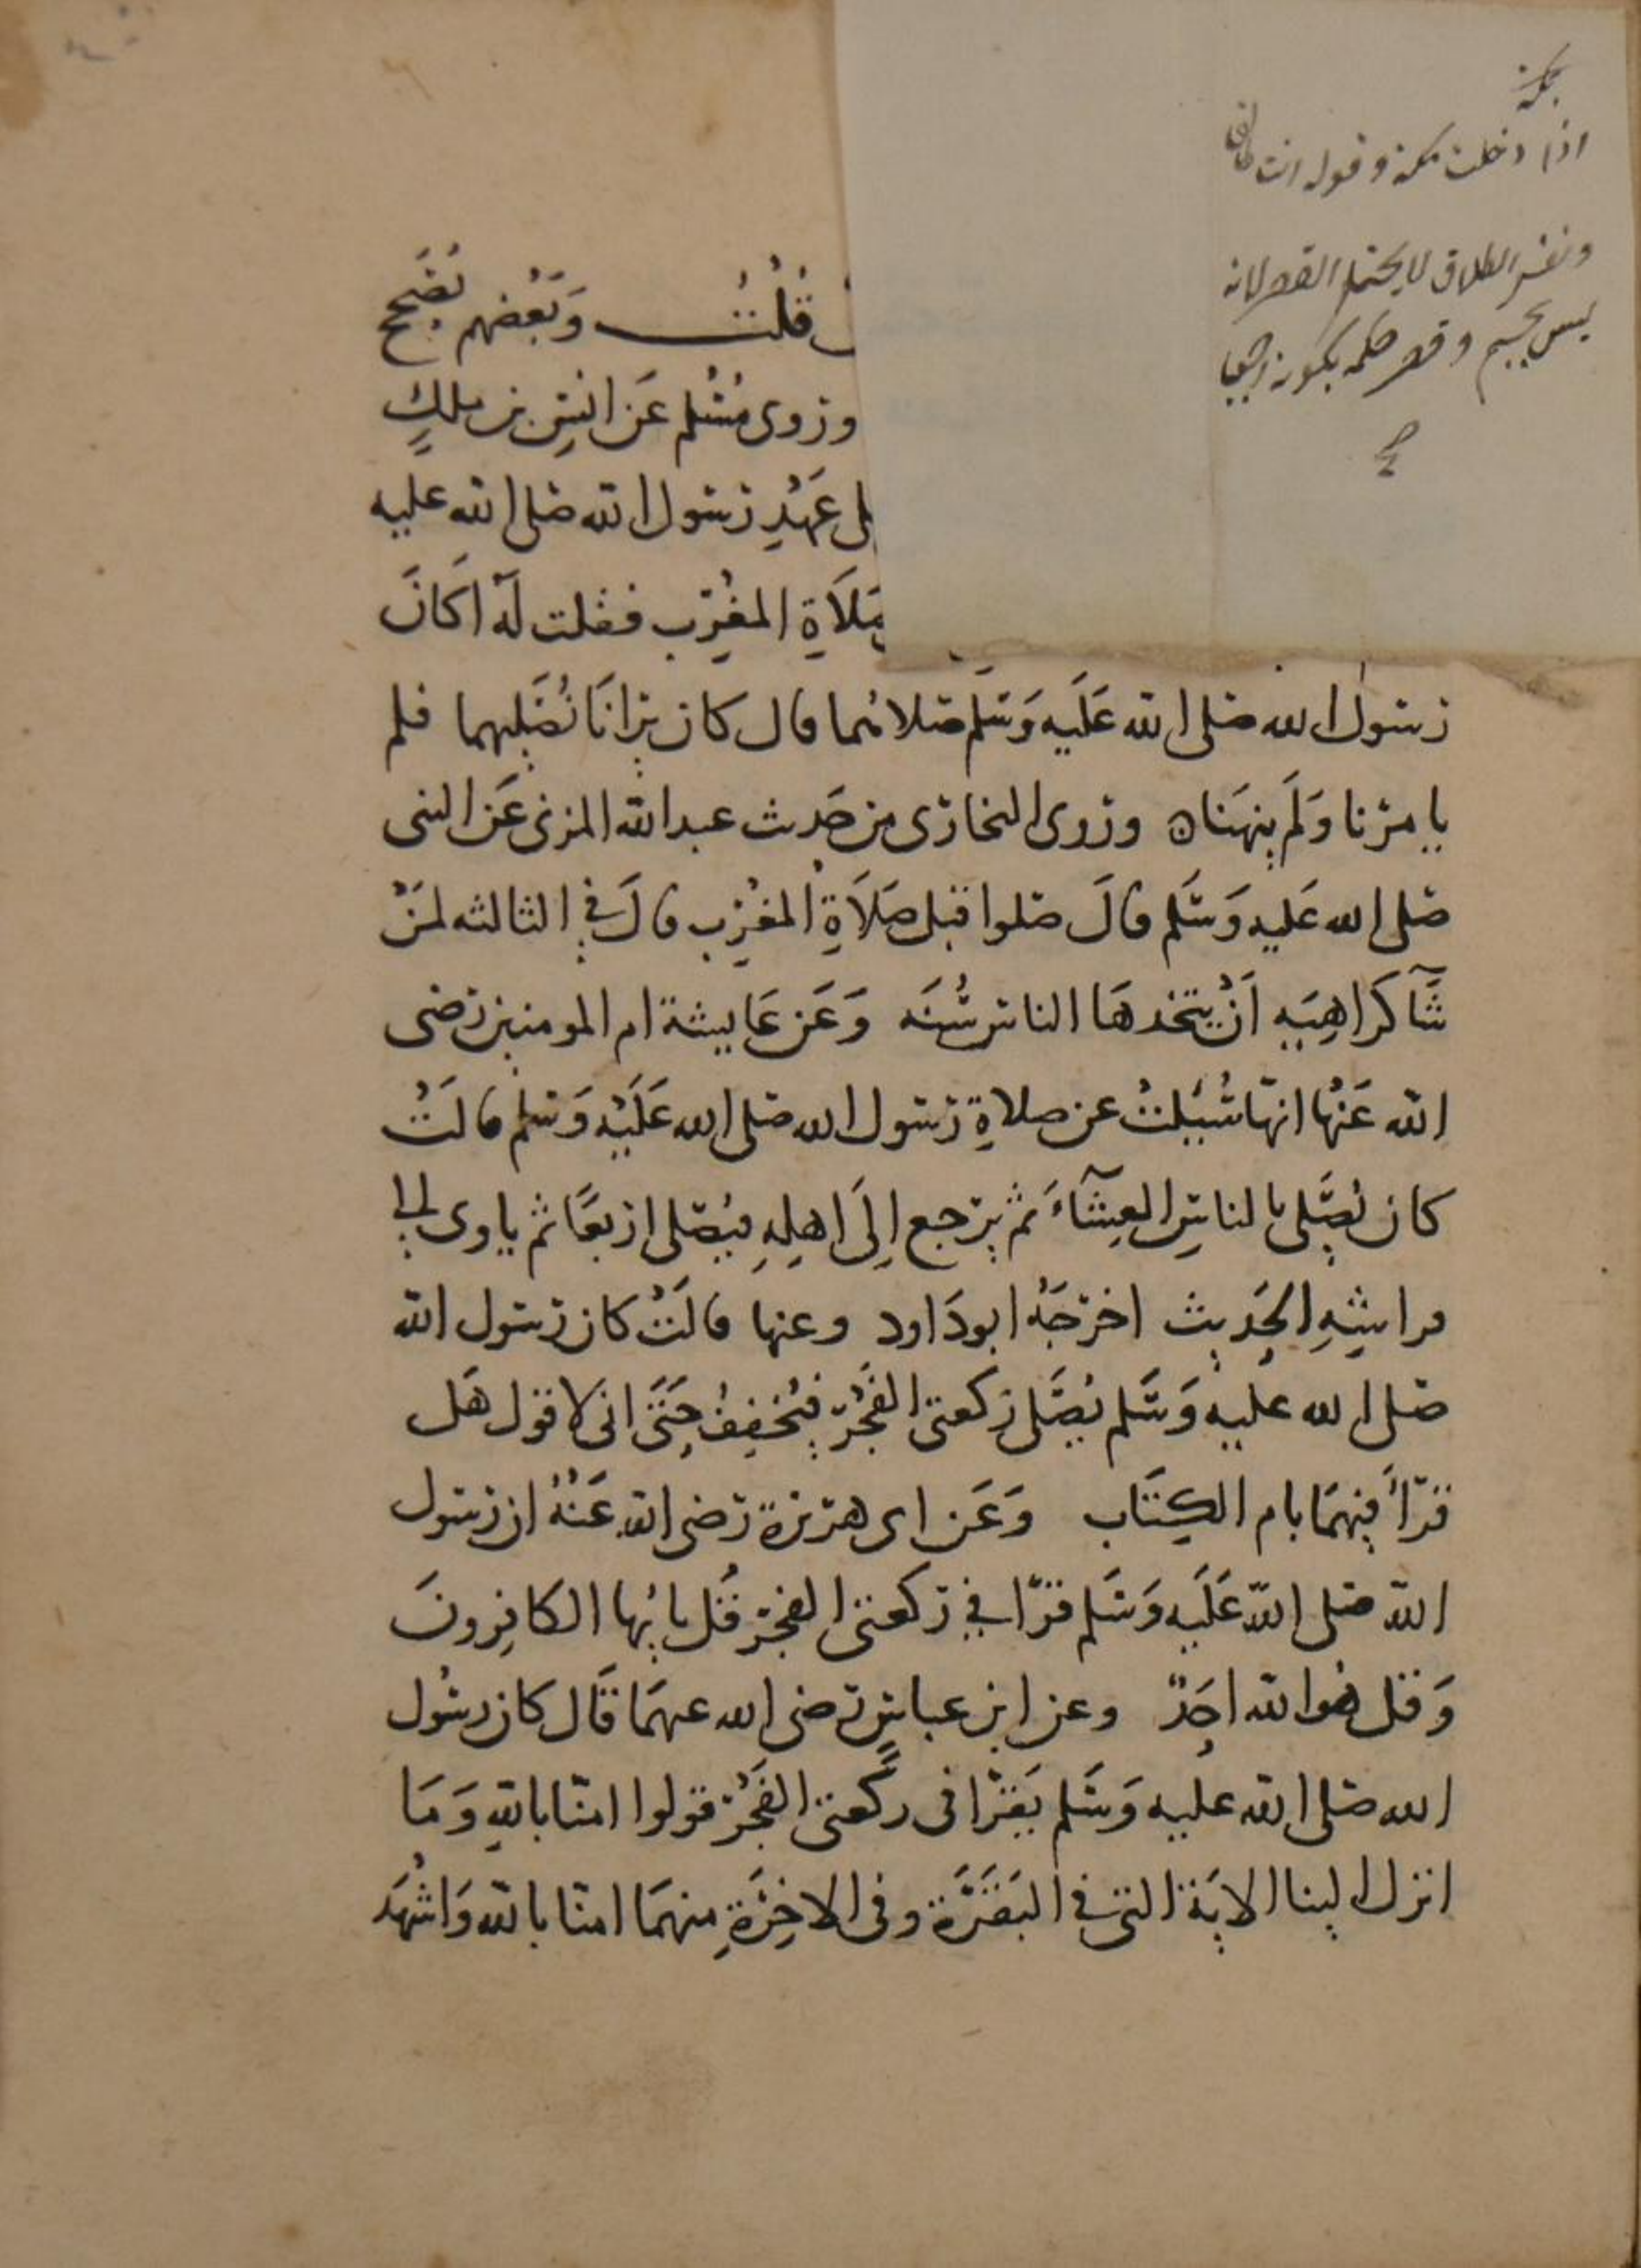 اذا دخلت مكة وقوله انت طالق
ونفس الطلاق لا يحتمل القصر لانه
ليس بجسم وقصر حكمه بكونه
قُلْتُ وَبَعْضهم يُصَحح
وروى مُسْلم عَن انسِ بن ملكٍ
عَهْدِ رسول الله صلى الله عليه
صَلَاةِ المغْرِب فقلت لَهُ اَكَانَ
رسول الله صلى الله عَلَيه وَسَلم صلاهما قال كان يرانَا نُصَليهما فلم
يامرنا وَلَم ينهَنا ه وروى البخارى من حَديث عبد الله المزنى عَن النبى
صلى الله عَليه وَسَلم قالَ صلوا قبل صَلَاةِ المغْرِب قالَ في الثالثه لمَنْ
شَآ كَرَاهِيَه اَنْ يتخذهَا الناس سُنَه وَعَن عَايشة ام المومنين رضى
الله عَنْهَا انهَا سُئِلتْ عن صلاةِ رسول الله صلى الله عَلَيْه وَسَلم قالَتْ
كان يُصَلى بالناسِ العِشَآءَ ثم يرجع اِلَى اَهلِهِ فيُصَلى اربعًا ثم ياوى الى
فراشِهِ الحَديث اخرجَهُ ابو دَاود وعنها قالَتْ كان رسول الله
صلى الله عليه وَسَلم يُصَلى ركعتى الفَجْرِ فيُخفِفُ حَتَى انى لاقول هَل
قرَاَ فيهمَا بام الكِتَاب وَعَن ابى هريرة رضى الله عَنْهُ ان رسول
الله صلى الله عَلَيه وَسَلم قرَا في ركعتى الفجر قُل يايها الكافِرونَ
وَقل هُوَ الله اَحَدٌ وعن ابن عباسٍ رضى الله عنهمَا قَال كان رسُول
الله صلى الله عليه وَسَلم يَقرَا فى ركعتى الفَجْرِ قولوا امنّا باللهِ وَمَا
انزل الينا الايَة التى في البَقَرَة وفى الاخِرَةِ منهمَا امنّا بالله وَاشْهَد